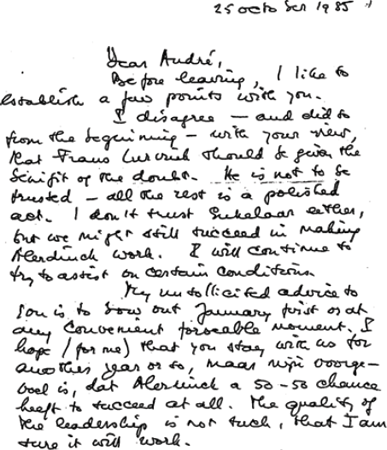 25 october 1985
Dear André,
Before leaving, I like to
establish a few points with you.
I disagree — and did so
from the beginning — with your view,
that Frans Lurvink should be given the
benifit of the doubt. He is not to be
trusted — all the rest is a polished
act. I don't trust Sukelaar either,
but we might still succeed in making
Alerdinck work. I will continue to
try to assist on certain conditions.
My unsollicited advice to
you is to bow out January first or at
any convenient forseable moment. I
hope (for me) that you stay with us for
another year or so, maar mijn voorge-
voel is, dat Alerdinck a 50-50 chance
heeft to succeed at all. The quality of
the leadership is not such, that I am
sure it will work.